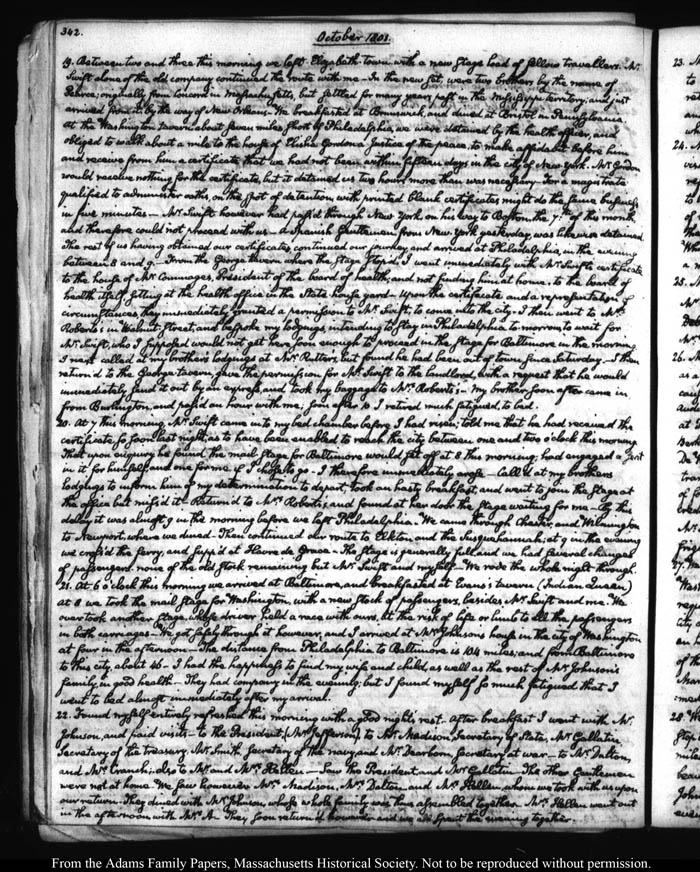 342.
October 1801.
19. Between two and three this morning we left Elizabeth town with a new stage load of fellow travellers. Mr.
Swift alone of the old company continued the route with me - In the new set, were two brothers by the name of
Pearce; originally from Concord in Massachusetts, but settled for many years past in the Mississippi territory, and just
arrived from it by the way of New Orleans - We breakfasted at Brunswick, and dined at Bristol in Pennsylvania.
At the Washington tavern about seven miles short of Philadelphia, we were detained by the health officer, and
obliged to walk about a mile to the house of Elisha Gordon a Justice of the peace, to make affidavit before him
and receive from him a certificate that we had not been within fifteen days in the city of New York. Mr. Gordon
would receive nothing for the certificate, but it detained us two hours more than was necessary - For a magistrate
qualified to administer oaths, on the spot of detention, with printed blank certificates might do the same business
in five minutes - Mr. Swift however had pass'd through New York on his way to Boston the 7th of this month
and therefore could not proceed with us - A Spanish Gentleman from New York yesterday, was likewise detained
The rest of us having obtained our certificates, continued our journey, and arrived at Philadelphia, in the evening
between 8 and 9. - From the George tavern where the Stage stops, I went immediately with Mr. Swift's certificate
to the house of Mr. Cummings, President of the board of health, and not finding him at home, to the board of
health itself, sitting at the health office in the State house yard - Upon the certificate and a representation of
circumstances, they immediately granted a permission to Mr. Swift, to come into the city - I then went to Mrs.
Roberts's in Walnut Street, and bespoke my lodgings, intending to stay in Philadelphia to-morrow to wait for
Mr. Swift, who I supposed would not get here soon enough to proceed in the stage for Baltimore in the morning
I next called at my brother's lodgings at Mrs. Rutter's, but found he had been out of town since Saturday - I then
return'd to the George tavern, gave the permission for Mr. Swift to the landlord, with a request that he would
immediately send it out by an express, and took my baggage to Mrs. Roberts's; - My brother soon after came in
from Burlington, and pass'd an hour with me; soon after 10 I retired much fatigued, to bed.
20. At 7 this morning, Mr. Swift came into my bed chamber before I had risen; told me that he had received the
certificate so soon last night, as to have been enabled to reach the city between one and two o'clock this morning
That upon enquiry he found the mail stage for Baltimore would set off at 8 this morning; had engaged a seat
in it for himself, and one for me if I chose to go - I therefore immediately arose - Call'd at my brother's
lodgings to inform him of my determination to depart, took an hasty breakfast, and went to join the Stage at
the office but miss'd it - Return'd to Mrs. Roberts's, and found at her door the Stage waiting for me - By this
delay it was almost 9 in the morning before we left Philadelphia - We came through Chester, and Wilmington
to Newport, where we dined - Then continued our route to Elkton, and the Susquehannah; at 9 in the evening
we cross'd the ferry, and supp'd at Havre de Grace - The Stage is generally full and we had several changes
of passengers. none of the old stock remaining but Mr. Swift and myself - We rode the whole night through.
21. At 6 o'clock this morning we arrived at Baltimore, and breakfasted at Evans's tavern (Indian Queen)
at 8 we took the mail stage for Washington, with a new stock of passengers, besides Mr. Swift and me - We
overtook another Stage, whose driver held a race with ours, at the risk of life or limb to all the passengers
in both carriages - We got safely through it however, and I arrived at Mr. Johnson's house in the city of Washington
at four in the afternoon - The distance from Philadelphia to Baltimore is 104 miles, and from Baltimore
to this city about 46 - I had the happiness to find my wife and child, as well as the rest of Mr. Johnson's
family in good health - They had company in the evening; but I found myself so much fatigued that I
went to bed almost immediately after my arrival.
22. Found myself entirely refreshed this morning with a good night's rest. After breakfast I went with Mr.
Johnson, and paid visits - to the President, (Mr. Jefferson), to Mr. Madison, Secretary of State, Mr. Gallatin,
Secretary of the treasury, Mr. Smith Secretary of the navy, and Mr. Dearborn, Secretary at war - to Mr. Dalton,
and Mr. Cranch; also to Mr. and Mrs. Hellen - Saw the President and Mr. Gallatin. The other Gentlemen
were not at home. We saw however Mrs. Madison, Mrs. Dalton, and Mrs. Hellen, whom we took with us upon
our return - They dined with Mr. Johnson, whose whole family was thus assembled together. Mrs. Hellen went out
in the afternoon with Mrs. A - They soon return'd however and we all spent the evening together.
23.
24.
25.
26.
27.
28.
From the Adams Family Papers, Massachusetts Historical Society. Not to be reproduced without permission.